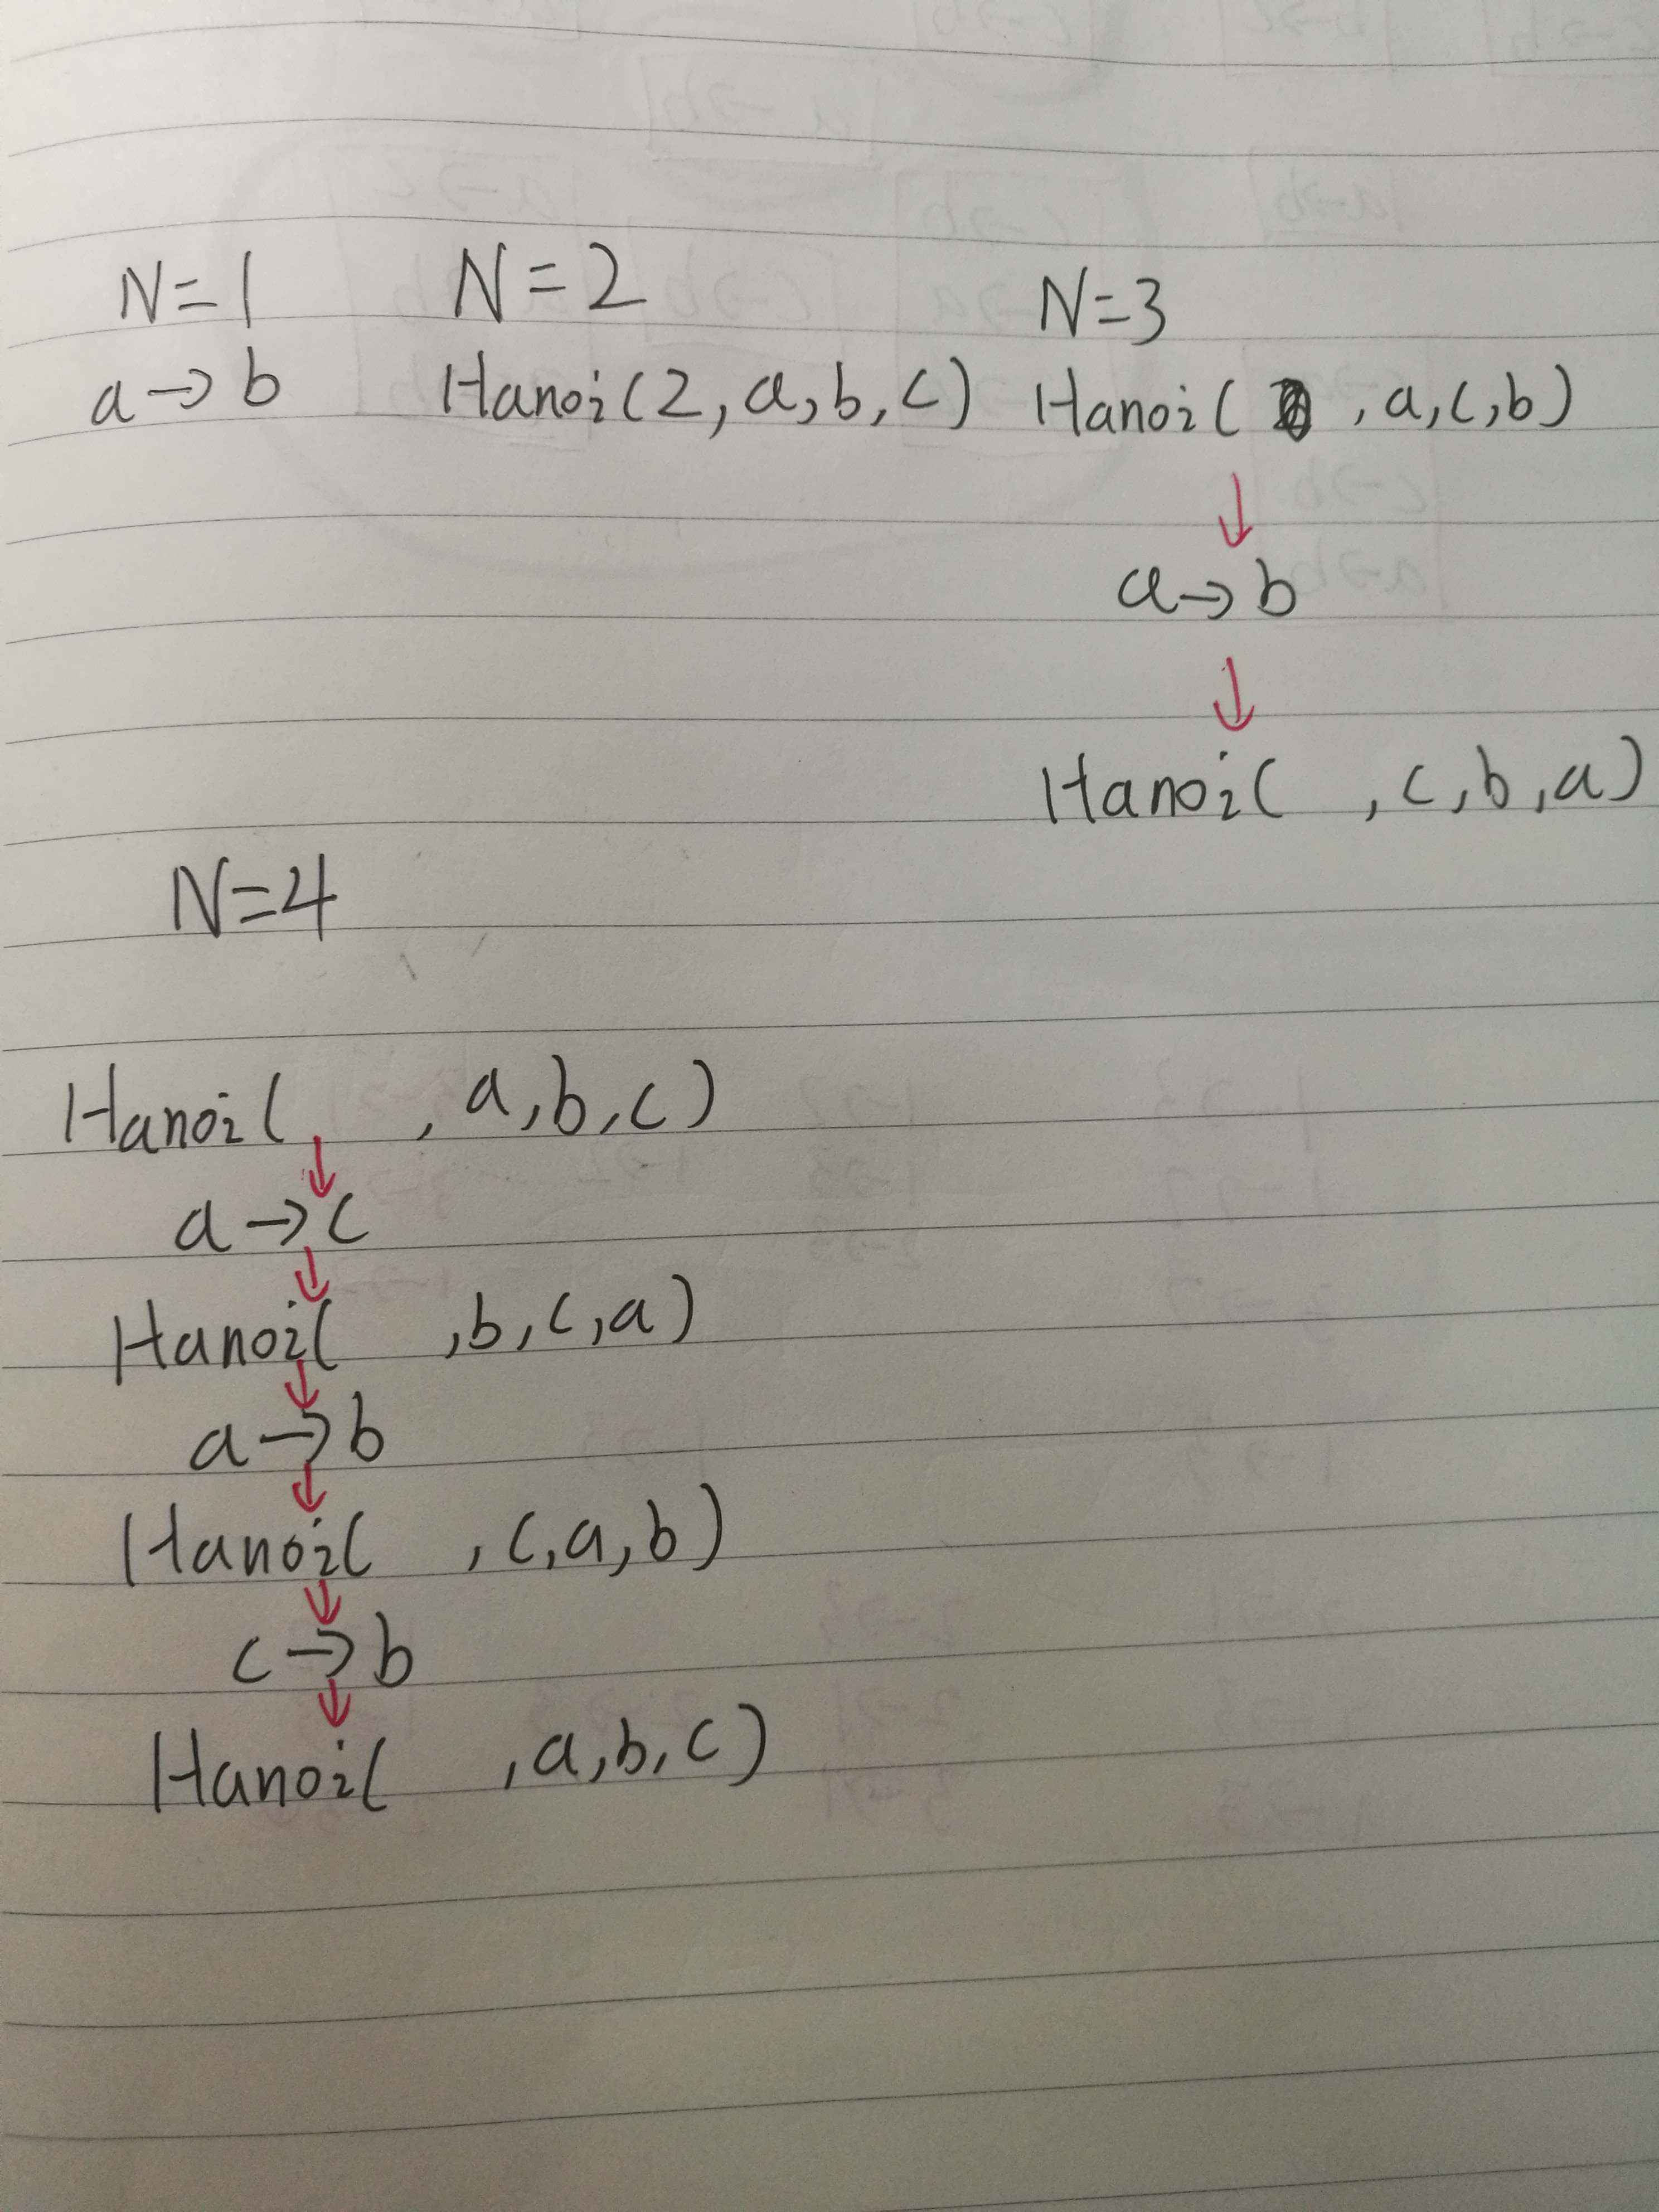 N=1
a→b
N=2
Hanoi(2,a,b,c)
N=3
Hanoi( ,a,c,b)
↓
a→b
↓
Hanoi( ,c,b,a)
N=4
Hanoi( ,a,b,c)
↓
a→c
↓
Hanoi( ,b,c,a)
↓
a→b
↓
Hanoi( ,c,a,b)
↓
c→b
↓
Hanoi( ,a,b,c)